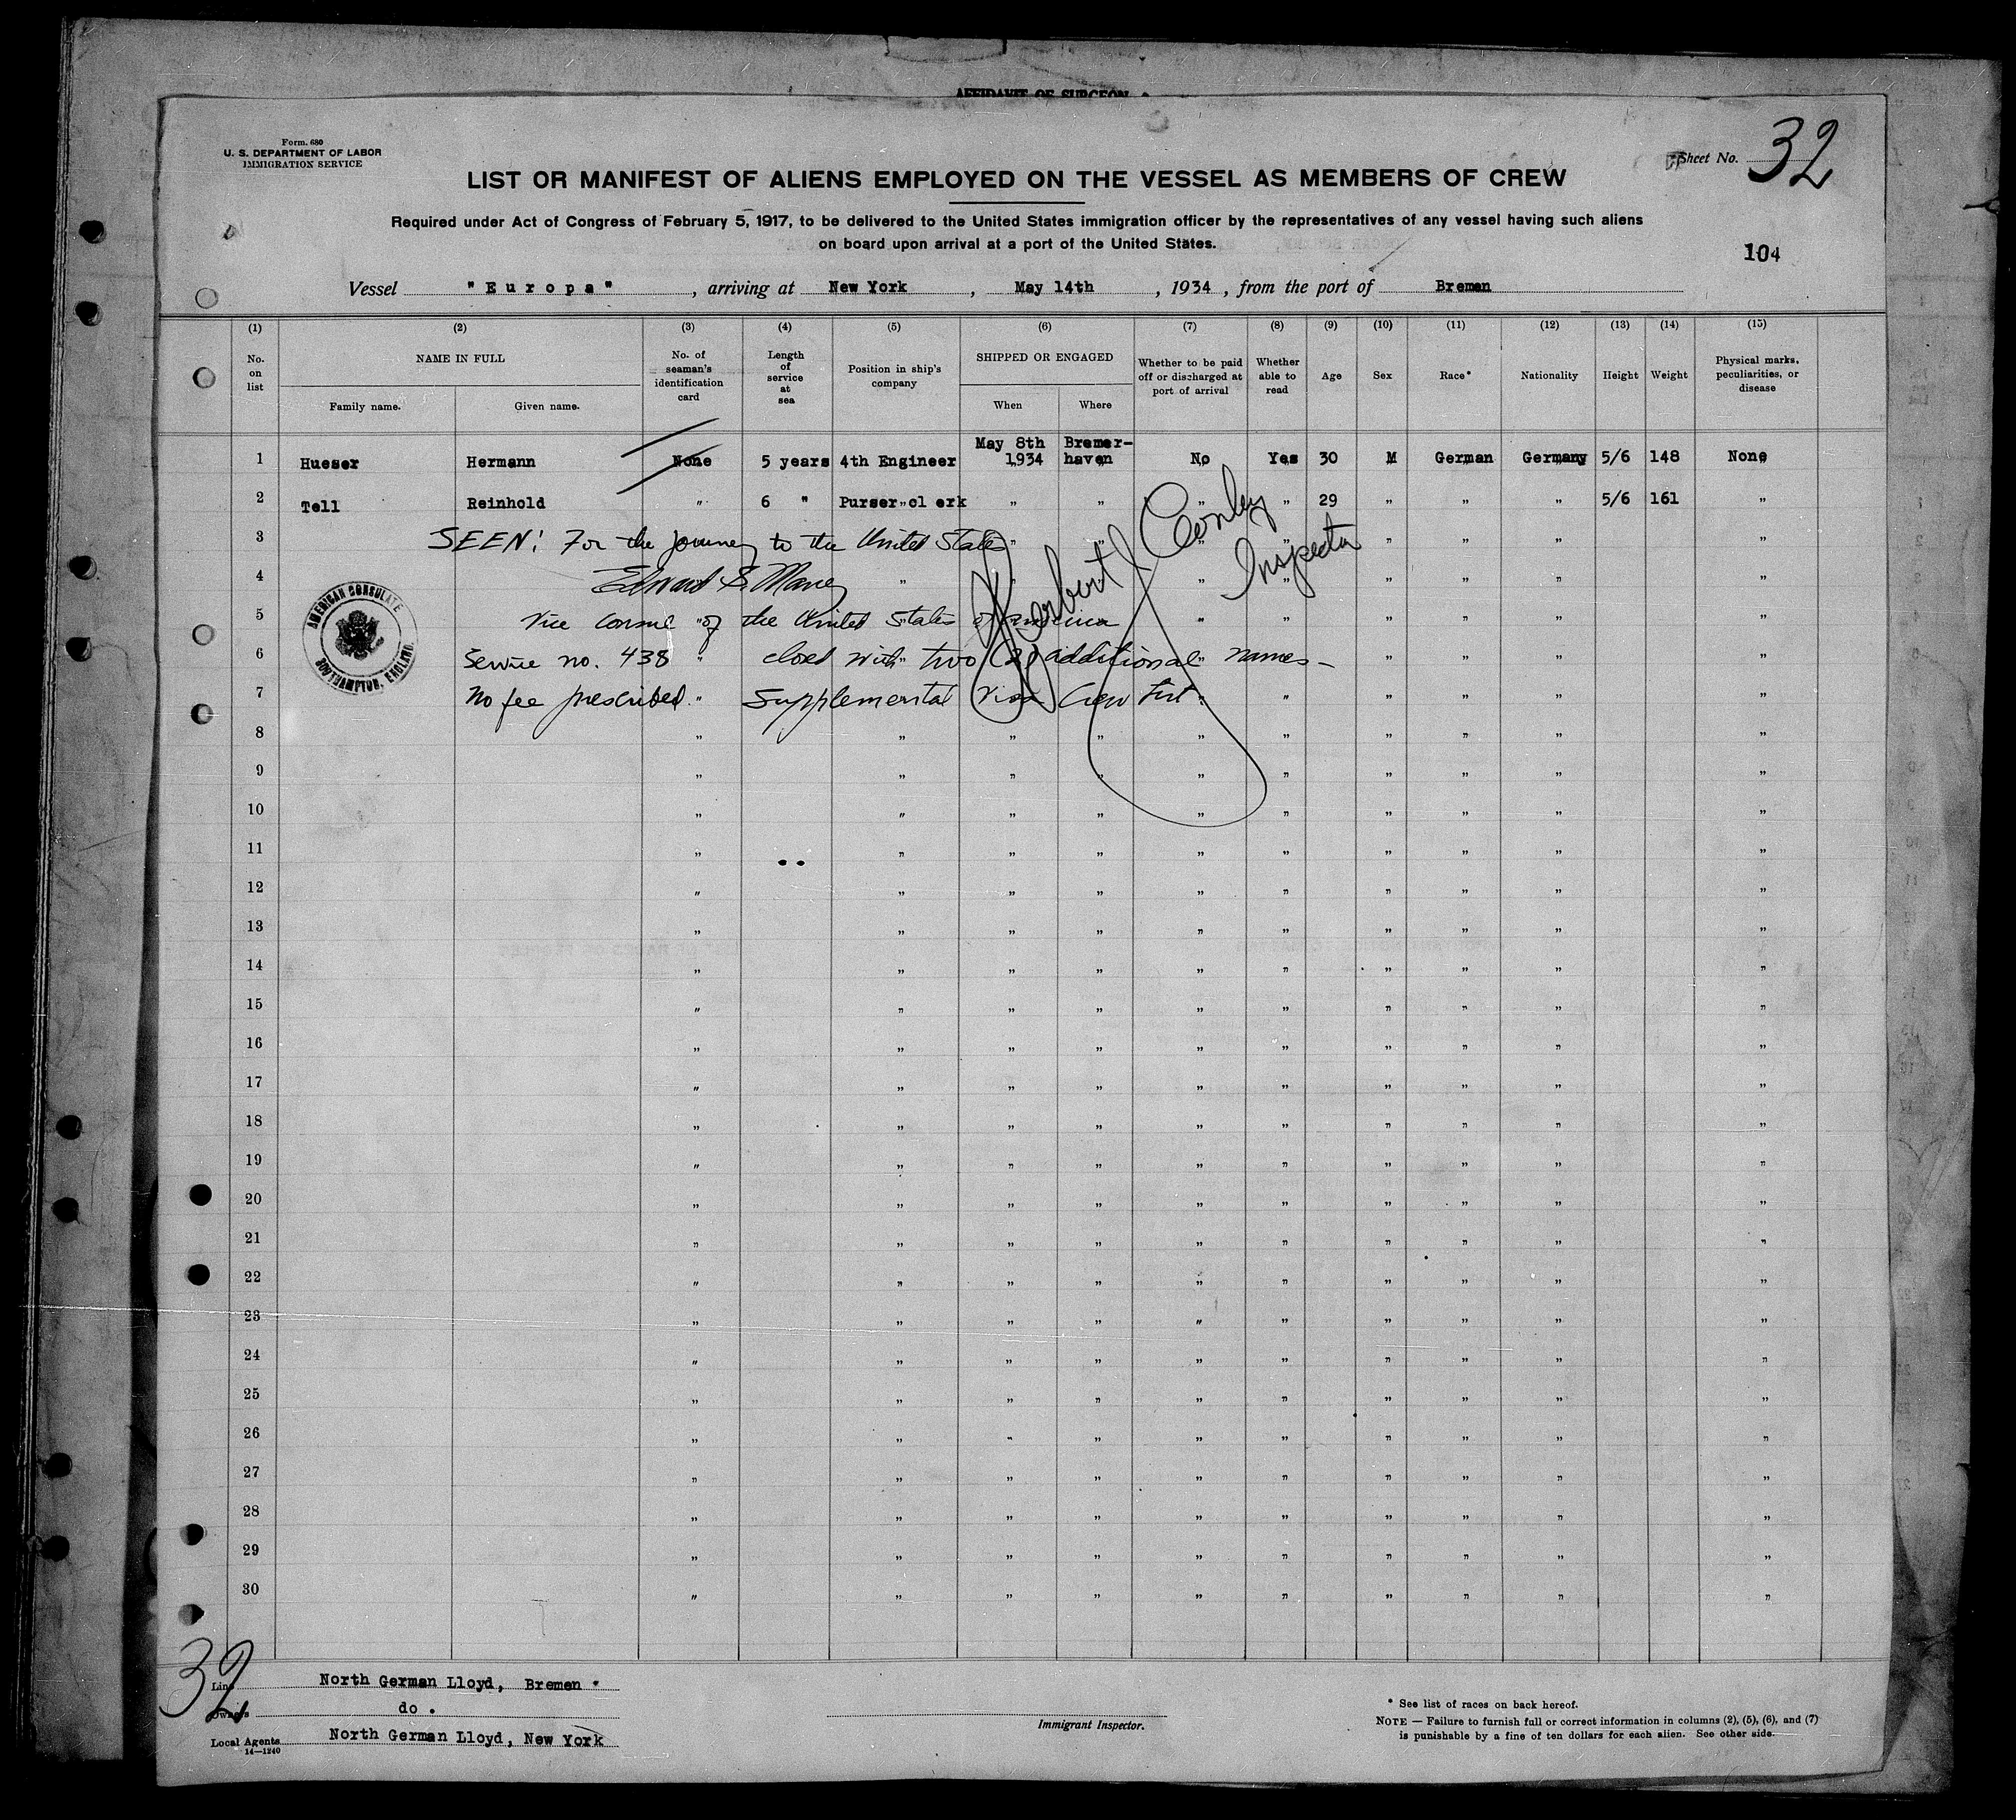 AFFIDAVIT OF SURGEON
Form. 680
U. S. DEPARTMENT OF LABOR
IMMIGRATION SERVICE
Sheet No. 32
LIST OR MANIFEST OF ALIENS EMPLOYED ON THE VESSEL AS MEMBERS OF CREW
Required under Act of Congress of February 5, 1917, to be delivered to the United States immigration officer by the representatives of any vessel having such aliens
on board upon arrival at a port of the United States.
104
Vessel "Europa", arriving at New York, May 14th, 1934, from the port of Bremen
(1) (2) (3) (4) (5) (6) (7) (8) (9) (10) (11) (12) (13) (14) (15)
No. on list
NAME IN FULL
Family name. Given name.
No. of seaman's identification card
Length of service at sea
Position in ship's company
SHIPPED OR ENGAGED
When Where
Whether to be paid off or discharged at port of arrival
Whether able to read
Age
Sex
Race*
Nationality
Height
Weight
Physical marks, peculiarities, or disease
1 Hueser Hermann None 5 years 4th Engineer May 8th 1934 Bremerhaven No Yes 30 M German Germany 5/6 148 None
2 Tell Reinhold " 6 " Purser clerk " " " " 29 " " " 5/6 161 "
3 SEEN: For the journey to the United States
4 Edward S. Maney
5 Vice Consul of the United States of America
6 Service no. 438 closed with two (2) additional names -
7 No fee prescribed. Supplemental Visa Crew List.
Herbert J Conley
Inspector
AMERICAN CONSULATE
SOUTHAMPTON, ENGLAND.
8
9
10
11
12
13
14
15
16
17
18
19
20
21
22
23
24
25
26
27
28
29
30
32
Line North German Lloyd, Bremen
Owners do.
Local Agents North German Lloyd, New York
14—1240
Immigrant Inspector.
* See list of races on back hereof.
NOTE — Failure to furnish full or correct information in columns (2), (5), (6), and (7)
is punishable by a fine of ten dollars for each alien. See other side.